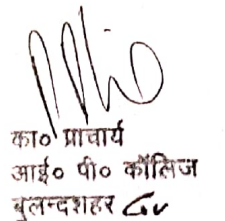 का० प्राचार्य
आई० पी० कॉलिज
बुलन्दशहर